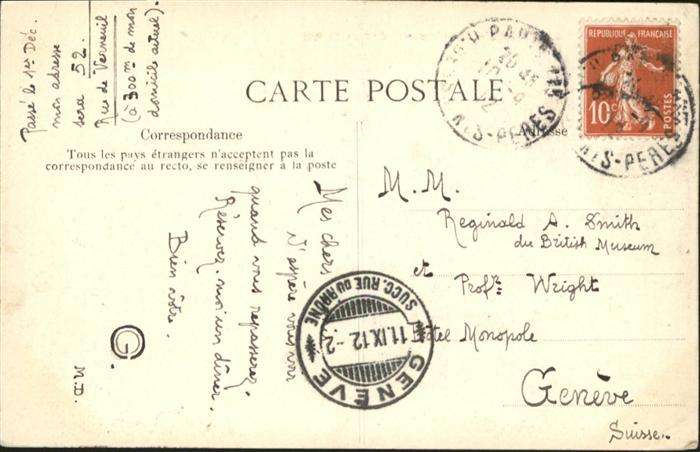 Passé le 1er Déc.
mon adresse
sera 52
Rue de Verneuil
(à 300m de mon
domicile actuel).
CARTE POSTALE
Correspondance
Adresse
Tous les pays étrangers n'acceptent pas la
correspondance au recto, se renseigner à la poste
Mes chers
J'espère vous voir
quand vous repasserez.
Réservez-moi un dîner.
Bien vôtre.
M.D.
M. M.
Reginald A. Smith
du British Museum
et
Profr. Wright
Hôtel Monopole
Genève
Suisse.
REPUBLIQUE FRANÇAISE
10c
POSTES
STS-PERES
STS-PERES
SUCC. RUE DU RHÔNE
11.IX.12-2
GENÈVE